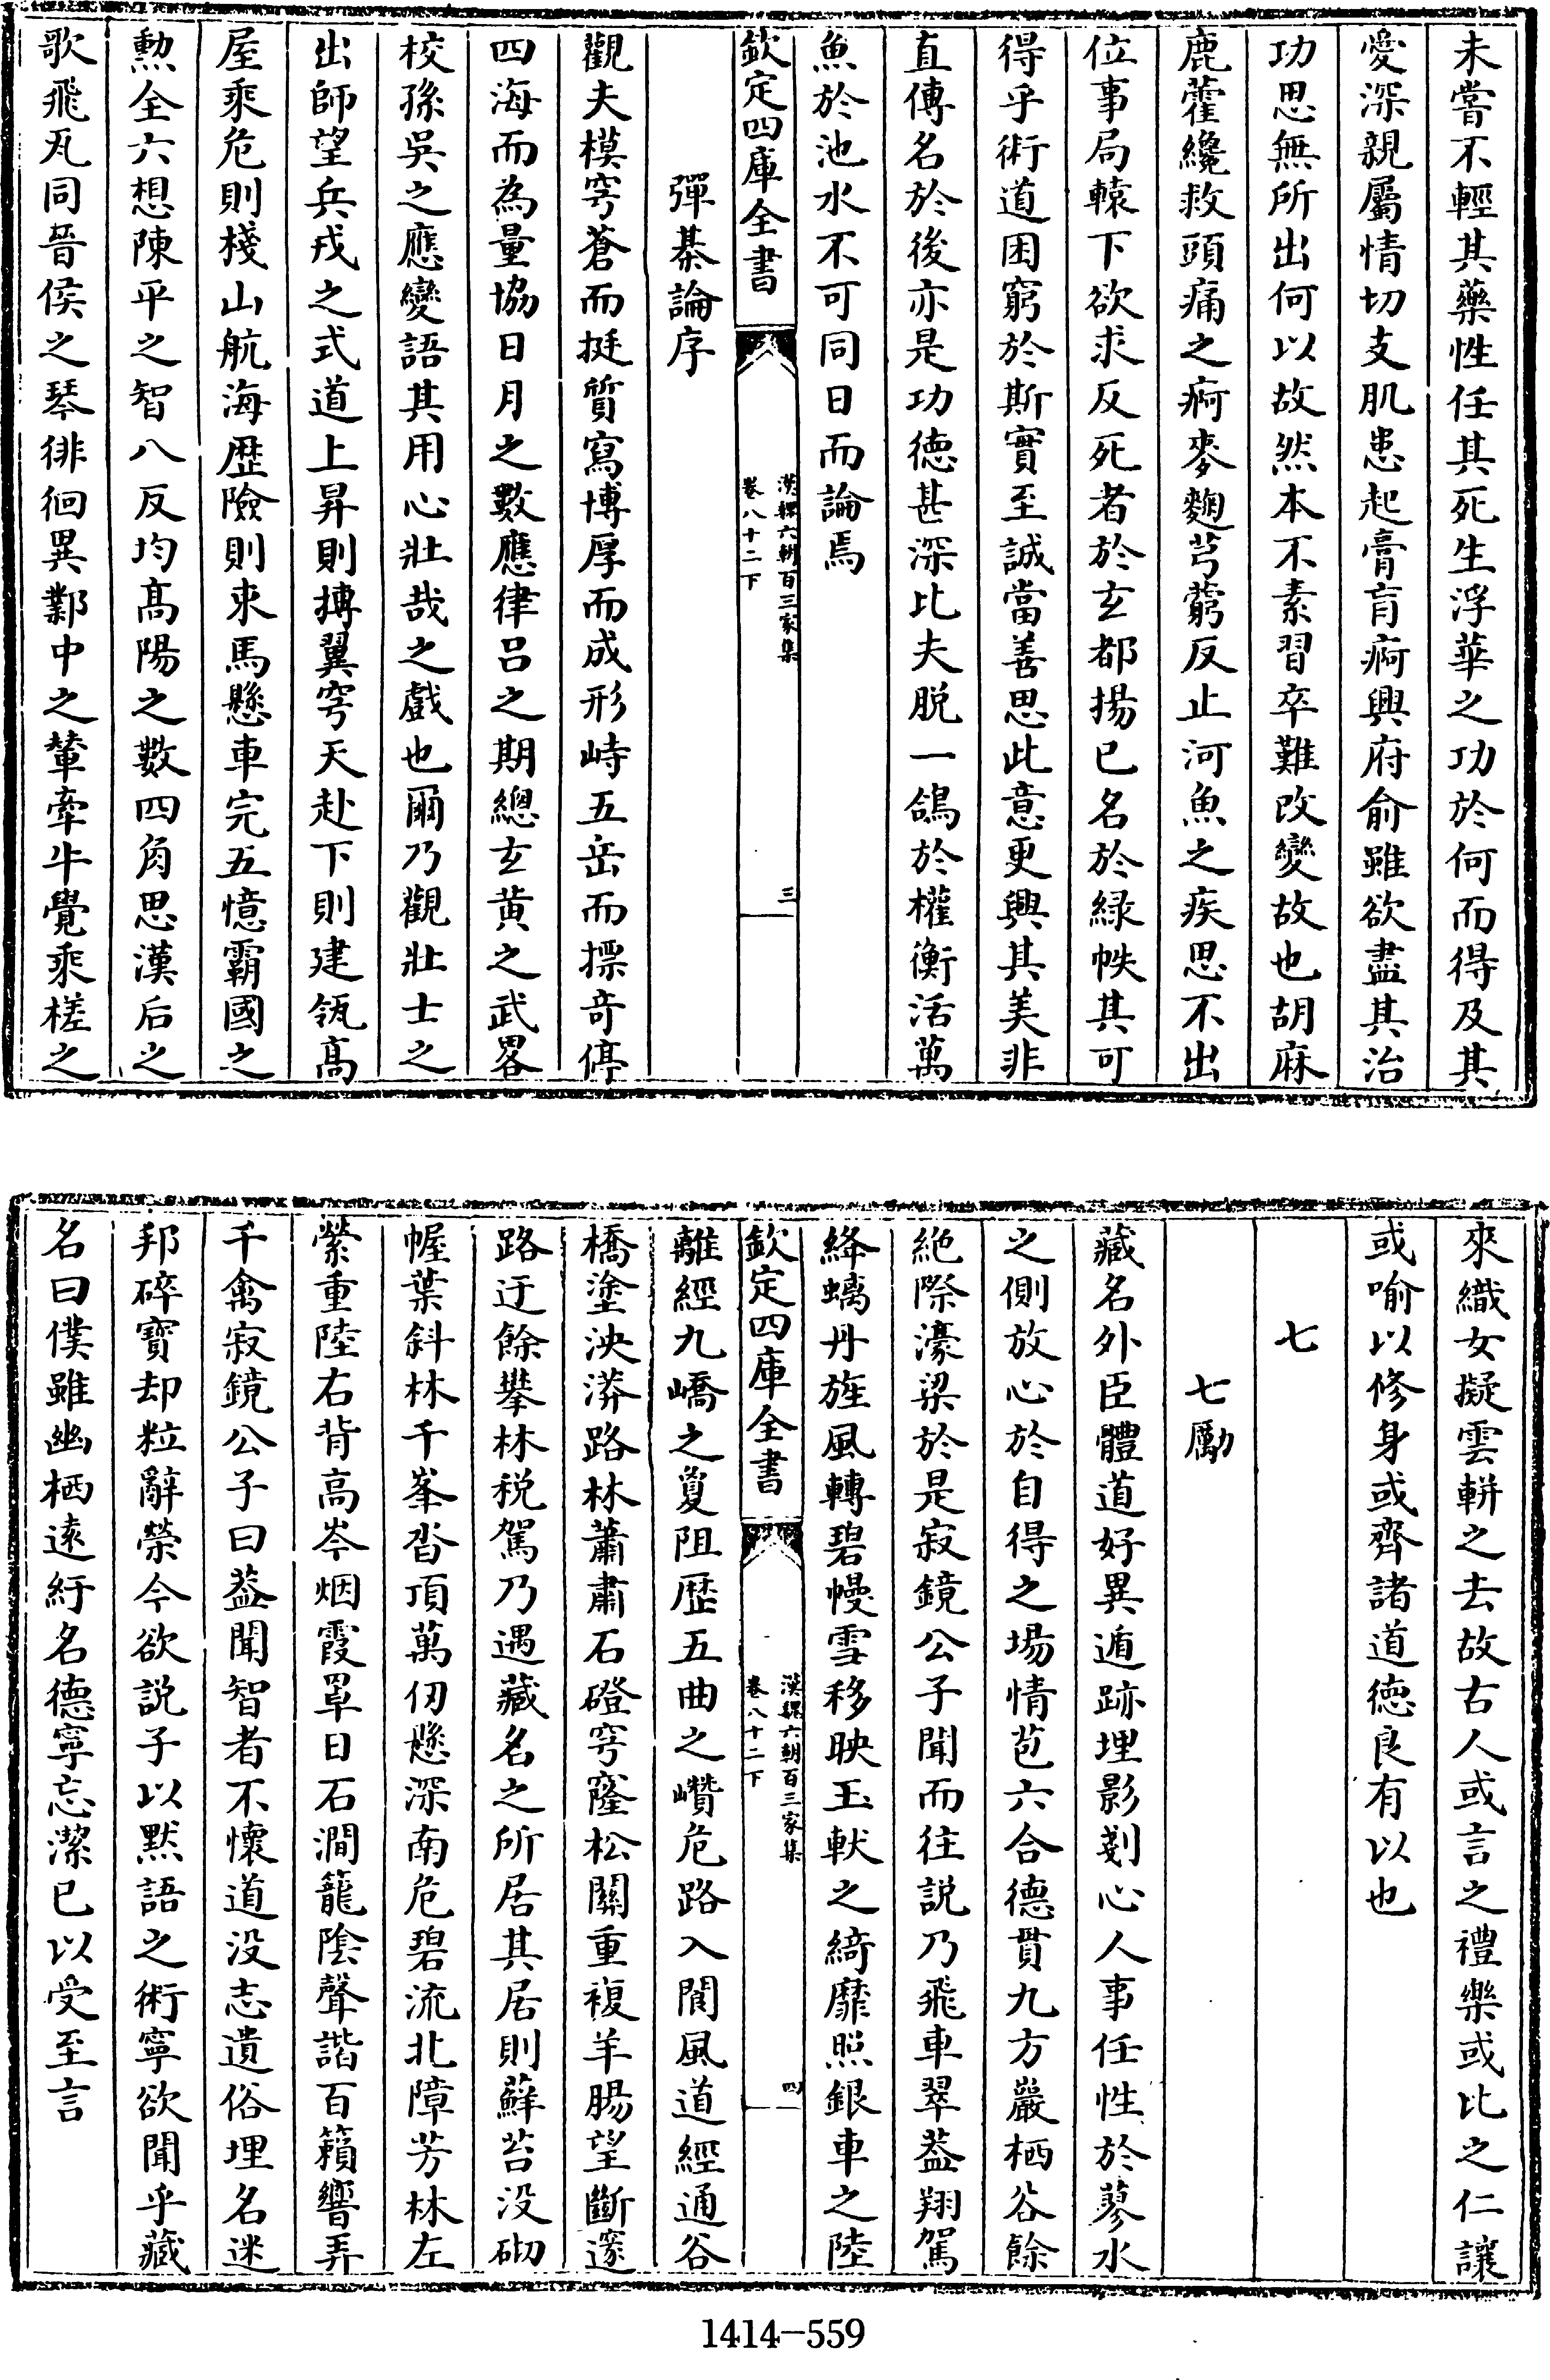 未嘗不輕其藥性任其死生浮華之功於何而得及其
愛深親屬情切支肌患起膏肓痾興府俞雖欲盡其治
功思無所出何以故然本不素習卒難改變故也胡麻
鹿藿纔救頭痛之痾麥麴芎藭反止河魚之疾思不出
位事局轅下欲求反死者於玄都揚已名於緑帙其可
得乎術道困窮於斯實至誠當善思此意更興其美非
直傳名於後亦是功德甚深比夫脱一鴿於權衡活萬
魚於池水不可同日而論焉
欽定四庫全書
漢魏六朝百三家集
卷八十二下
三
彈棊論序
觀夫模穹蒼而挺質寫博厚而成形峙五岳而摽竒停
四海而為量協日月之數應律吕之期總玄黄之武畧
校孫吳之應變語其用心壯哉之戲也爾乃觀壯士之
出師望兵戎之式道上昇則摶翼穹天赴下則建瓴高
屋乘危則棧山航海歴險則束馬懸車完五憶霸國之
勲全六想陳平之智八反均高陽之數四角思漢后之
歌飛丸同晉侯之琴徘徊異鄴中之輦牽牛覺乘槎之
來織女擬雲軿之去故古人或言之禮樂或比之仁讓
或喻以修身或齊諸道德良有以也
七
七勵
藏名外臣體道好異遁跡埋影剗心人事任性於蓼水
之側放心於自得之場情苞六合德貫九方巖栖谷餘
絶際濠梁於是寂鏡公子聞而往說乃飛車翠葢翔駕
絳螭丹旌風轉碧幔雪移映玉軑之綺靡照銀車之陸
欽定四庫全書
漢魏六朝百三家集
卷八十二下
四
離經九嶠之敻阻歴五曲之巑危路入閬風道經通谷
橋塗泱漭路林蕭肅石磴穹窿松關重複羊腸望斷邃
路迂餘攀林税駕乃遇藏名之所居其居則蘚苔没砌
幄葉斜林千峯沓頂萬仞懸深南危碧流北障芳林左
縈重陸右背高岑烟霞罩日石澗籠隂聲諧百籟響弄
千禽寂鏡公子曰葢聞智者不懐道没志遺俗埋名迷
邦碎寶却粒辭榮今欲説子以黙語之術寧欲聞乎藏
名曰僕雖幽栖遠紆名德寧忘潔已以受至言
1414-559